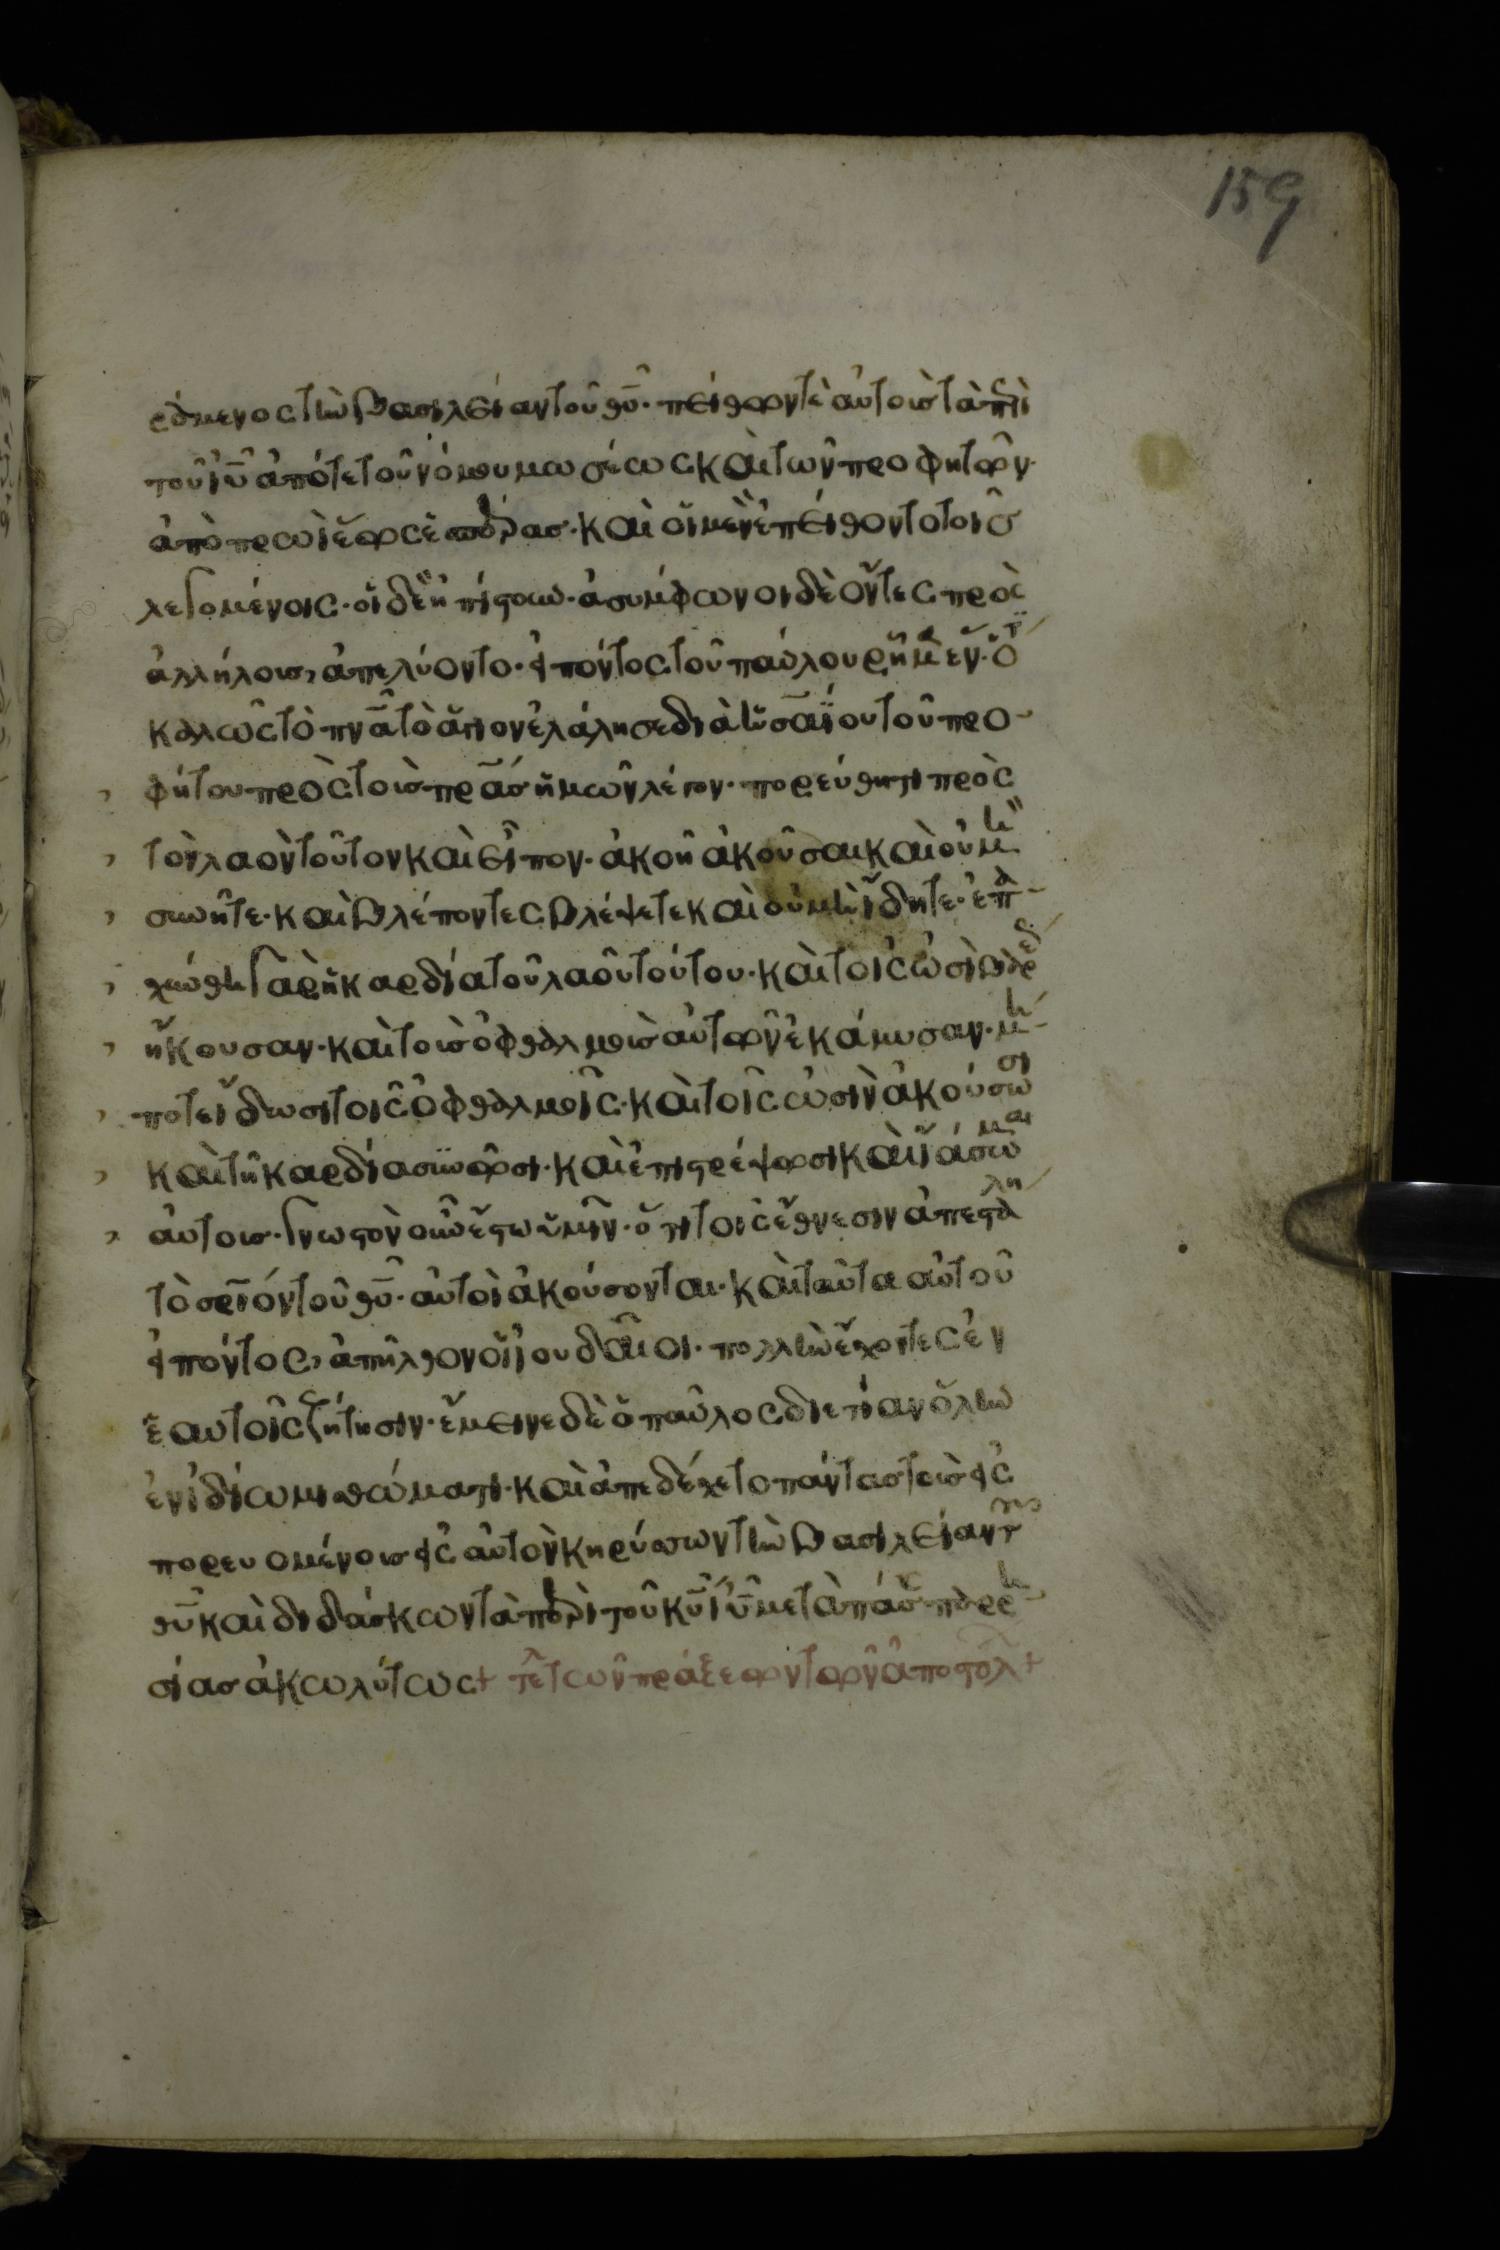 159
ρόμενος τὴν βασιλείαν τοῦ θυ̅· πείθων τὲ αὐτοὺς τὰ περὶ
τοῦ ἰυ̅ ἀπό τε τοῦ νόμου μωσέως καὶ τῶν προφητῶν·
ἀπὸ πρωῒ ἕως ἑσπέρας· καὶ οἱ μὲν ἐπείθοντο τοῖς
λεγομένοις· οἱ δὲ ἠπίστουν· ἀσυμφωνοι δὲ ὄντες πρὸς
ἀλλήλους, ἀπελύοντο· εἰπόντος τοῦ παύλου ῥῆμα ἕν· ὅτι
καλῶς τὸ πνα̅ τὸ ἅγιον ἐλάλησε διὰ ἡσαΐου τοῦ προ
φήτου πρὸς τοὺς πρα̅ς ἡμῶν λέγον· πορεύθητι πρὸς
τὸν λαὸν τοῦτον καὶ εἶπον· ἀκοῇ ἀκούσατε καὶ οὐ μὴ
συνῆτε· καὶ βλέποντες βλέψετε καὶ οὐ μὴ ἴδητε· ἐπα
χύνθη γὰρ ἡ καρδία τοῦ λαοῦ τούτου· καὶ τοῖς ὠσὶ βαρέως
ἤκουσαν· καὶ τοὺς ὀφθαλμοὺς αὐτῶν ἐκάμυσαν· μή
ποτε ἴδωσι τοῖς ὀφθαλμοῖς· καὶ τοῖς ὠσὶν ἀκούσωσι
καὶ τῇ καρδία συνῶσι· καὶ ἐπιστρέψωσι καὶ ἰάσωμαι
αὐτούς· γνωστὸν οὖν ἔστω ὑμῖν· ὅτι τοῖς ἔθνεσιν ἀπεστάλη
τὸ σρι̅όν τοῦ θυ̅· αὐτοὶ ἀκούσονται· καὶ ταῦτα αὐτοῦ
εἰπόντος, ἀπῆλθον οἱ ἰουδαῖοι· πολλὴν ἔχοντες ἐν
ἑαυτοῖς ζήτησιν· ἔμεινε δὲ ὁ παῦλος διετίαν ὅλην
ἐν ἰδίω μισθώματι· καὶ ἀπεδέχετο πάντας τοὺς εἰσ
πορευομένους εἰς αὐτὸν κηρύσσων τὴν βασιλείαν τοῦ
θυ̅ καὶ διδάσκων τὰ περὶ τοῦ κυ̅ ἰυ̅ μετὰ πάσης παρρη
σίας ἀκωλύτως + τέ τῶν πράξεων τῶν ἀποστόλ +